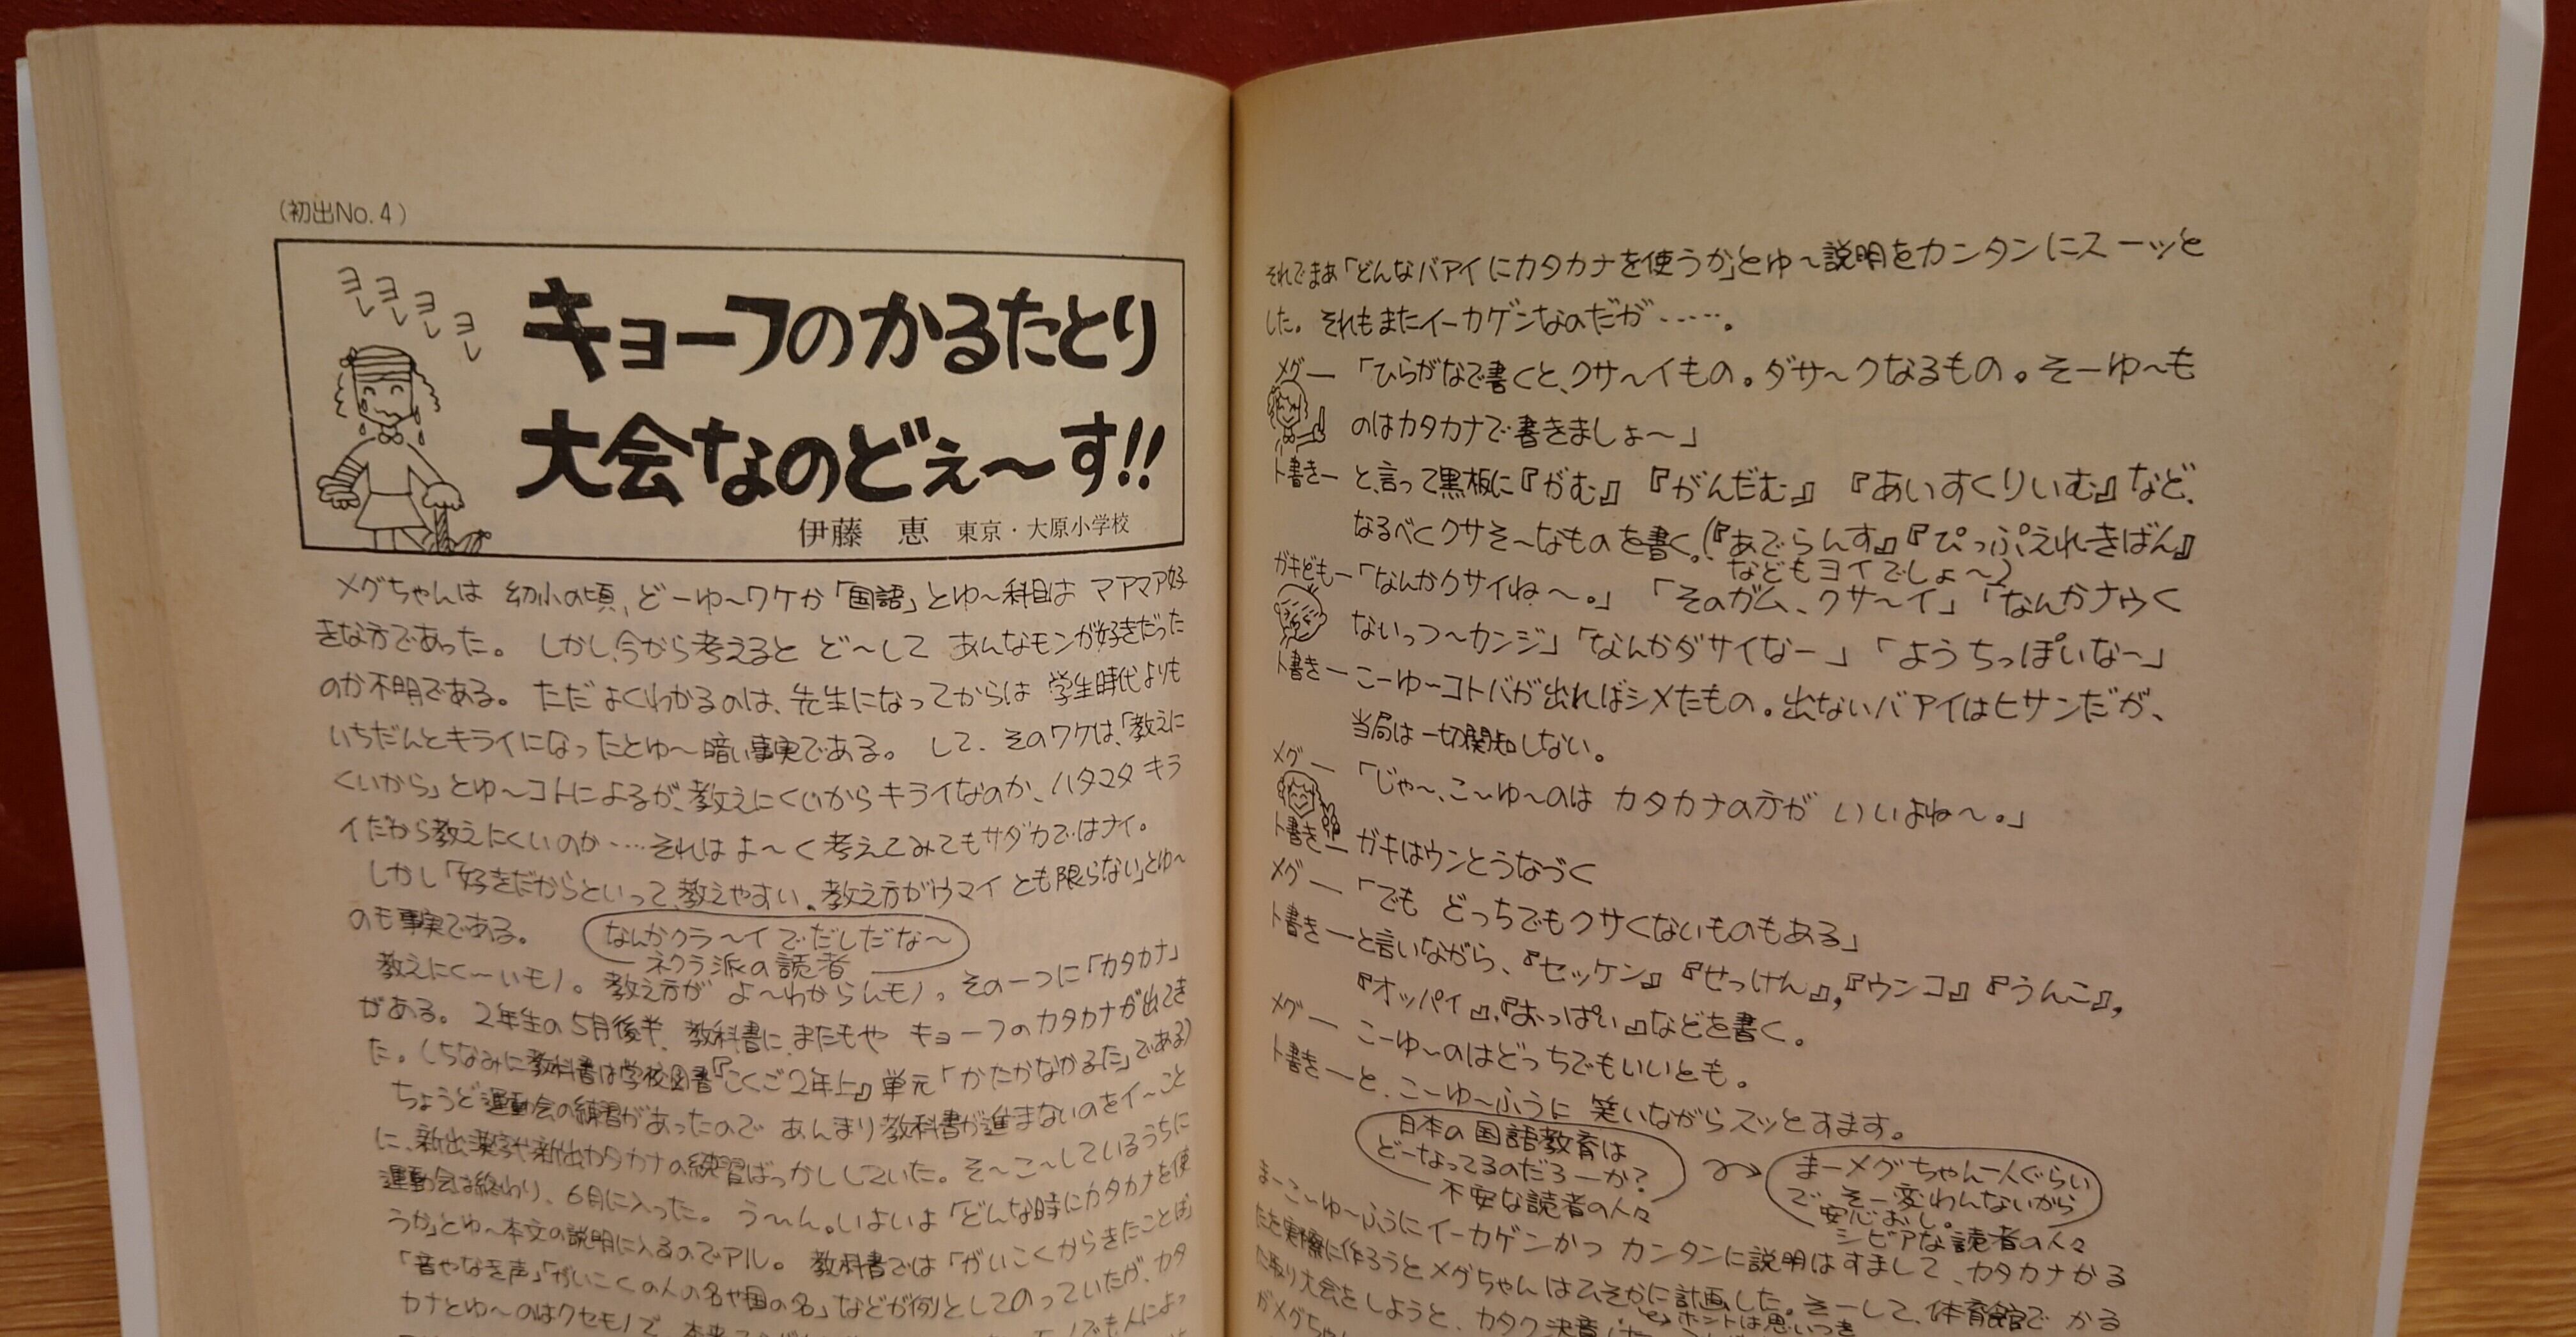 (初出No.4)
ヨレ ヨレ ヨレ ヨレ
キョーフのかるたとり
大会なのどぇ〜す!!
伊藤 恵 東京・大原小学校
メグちゃんは 幼小の頃、どーゆ〜ワケか「国語」とゆ〜科目は マアマア好
きな方であった。 しかし、今から考えると ど〜して あんなモンが好きだった
のか不明である。 ただ よくわかるのは、先生になってからは 学生時代よりも
いちだんとキライになったとゆ〜暗い事実である。 して、そのワケは、「教えに
くいから」とゆ〜コトによるが、教えにくいからキライなのか、ハタマタ キラ
イだから教えにくいのか‥‥それは よ〜く考えてみてもサダカではナイ。
しかし「好きだからといって、教えやすい、教え方がウマイ とも限らない」とゆ〜
のも事実である。
なんかクラ〜イでだしだな〜
ネクラ派の読者
教えにく〜いモノ。教え方が よ〜わからんモノ。その一つに「カタカナ」
がある。 2年生の5月後半、教科書に、またもや キョーフのカタカナが出てき
た。(ちなみに教科書は学校図書『こくご2年上』単元「かたかなかるた」である)
ちょうど運動会の練習があったので あんまり教科書が進まないのをイ〜こと
に、新出漢字や新出カタカナの練習ばっかししていた。そ〜こ〜しているうちに
運動会は終わり、6月に入った。 う〜ん。いよいよ「どんな時にカタカナを使
うか」とゆ〜本文の説明に入るのでアル。 教科書では「がいこくからきたことば」
「音やなき声」「がいこくの人の名や国の名」などが例としてのっていたが、カタ
カナとゆ〜のはクセモノで、
それでまあ「どんなバアイにカタカナを使うか」とゆ〜説明をカンタンにスーッと
した。それもまたイーカゲンなのだが‥‥‥。
メグ―「ひらがなで書くと、クサ〜イもの。ダサ〜クなるもの。そーゆ〜も
のはカタカナで書きましょ〜」
ト書き―と、言って黒板に『がむ』『がんだむ』『あいすくりいむ』など、
なるべくクサそ〜なものを書く。(『あでらんす』『ぴっぷえれーきばん』
などもヨイでしょ〜)
ガキども―「なんかクサイね〜。」「そのガム、クサ〜イ」「なんかナウく
ないっつ〜カンジ」「なんかダサイなー」「ようちっぽいな〜」
ト書き―こーゆ〜コトバが出ればシメたもの。出ないバアイはヒサンだが、
当局は一切関知しない。
メグ―「じゃ〜、こ〜ゆ〜のは カタカナの方が いいよね〜。」
ト書き―ガキはウンとうなづく
メグ―「でも どっちでもクサくないものもある」
ト書き―と言いながら、『セッケン』『せっけん』,『ウンコ』『うんこ』,
『オッパイ』,『おっぱい』などを書く。
メグ― こーゆ〜のはどっちでもいいとも。
ト書き―と、こーゆ〜ふうに 笑いながらスッとすます。
日本の国語教育は
どーなってるのだろーか?
不安な読者の人々
まーメグちゃん一人ぐらい
で、そー変わんないから
安心おし。
シビアな読者の人々
まーこ〜ゆ〜ふうにイーカゲンかつ カンタンに説明はすまして、カタカナかる
たを実際に作ろうとメグちゃんはひそかに計画した。そーして、体育館で かる
た取り大会をしようと、カタク決意
ホントは思いつき